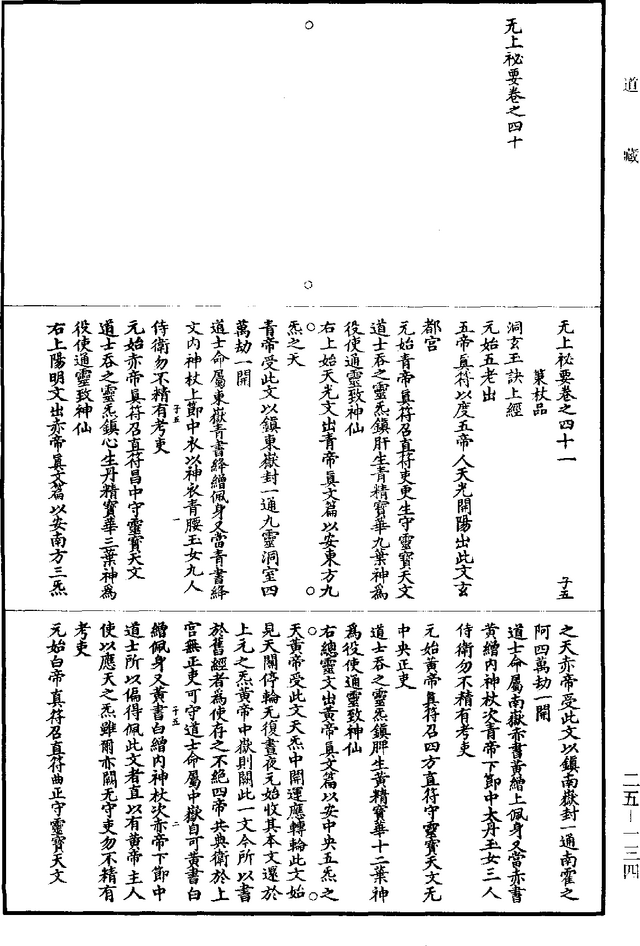 道藏
无上祕要卷之四十
无上祕要卷之四十一
子五
策杖品
洞玄玉訣上經
元始五老出
五帝真符以度五帝人天光開陽出此文玄
都宮
元始青帝真符召直符吏更生守靈寶天文
道士吞之靈炁鎮肝生青精寶華九葉神為
役使通靈致神仙
右上始天光文出青帝真文篇以安東方九
炁之天
青帝受此文以鎮東嶽封一通九靈洞室四
萬劫一開
道士命屬東嶽青書絳繒佩身又當青書絳
文內神杖上節中衣以神衣青腰玉女九人
子五 一
侍衛勿不精有考吏
元始赤帝真符召直符昌中守靈寶天文
道士吞之靈炁鎮心生丹精寶華三葉神為
役使通靈致神仙
右上陽明文出赤帝真文篇以安南方三炁
之天赤帝受此文以鎮南嶽封一通南霍之
阿四萬劫一開
道士命屬南嶽赤書黃繒上佩身又當赤書
黃繒內神杖次青帝下節中太丹玉女三人
侍衛勿不精有考吏
元始黃帝真符召四方直符守靈寶天文无
中央正吏
道士吞之靈炁鎮脾生黃精寶華十二葉神
為役使通靈致神仙
右總靈文出黃帝真文篇以安中央五炁之
天黃帝受此文天炁中開運應轉輪此文始
見天關停輪无復晝夜元始收其本文還於
上元之炁黃帝中嶽則闕此一文今所以書
於舊經者為使存之不絕四帝共典衛於上
宮無正吏可守道士命屬中嶽自可黃書白
子五 二
繒佩身又黃書白繒內神杖次赤帝下節中
道士所以偏得佩此文者直以有黃帝主人
使以應天之炁雖爾亦闕无守吏勿不精有
考吏
元始白帝真符召直符曲正守靈寶天文
二五-一三四